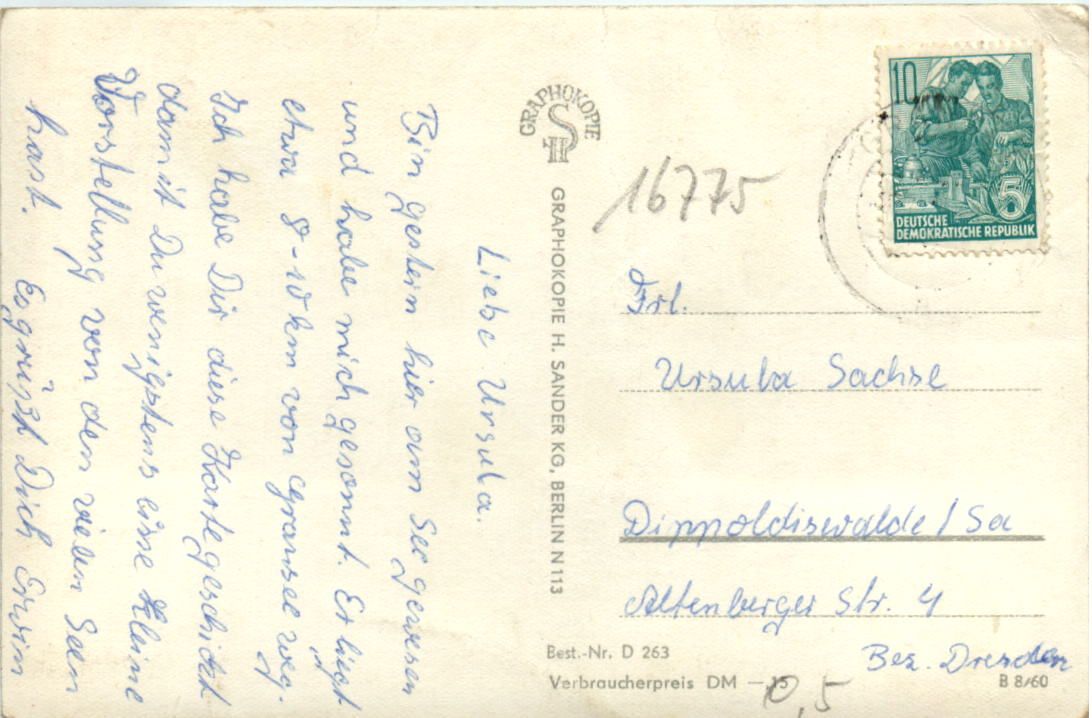 Liebe Ursula.
Bin gestern hier am See gewesen
und habe mich gesonnt. Er liegt
etwa 8-10 km von Gransee weg.
Ich habe Dir diese Karte geschickt
damit Du wenigstens eine kleine
Vorstellung von den vielen Seen
hast. Es grüßt Dich Erwin
GRAPHOKOPIE
GRAPHOKOPIE H. SANDER KG, BERLIN N 113
16775
10
5
DEUTSCHE
DEMOKRATISCHE REPUBLIK
Frl.
Ursula Sachse
Dippoldiswalde / Sa
Altenberger Str. 4
Bez. Dresden
Best.-Nr. D 263
Verbraucherpreis DM —15
0,5
B 8/60